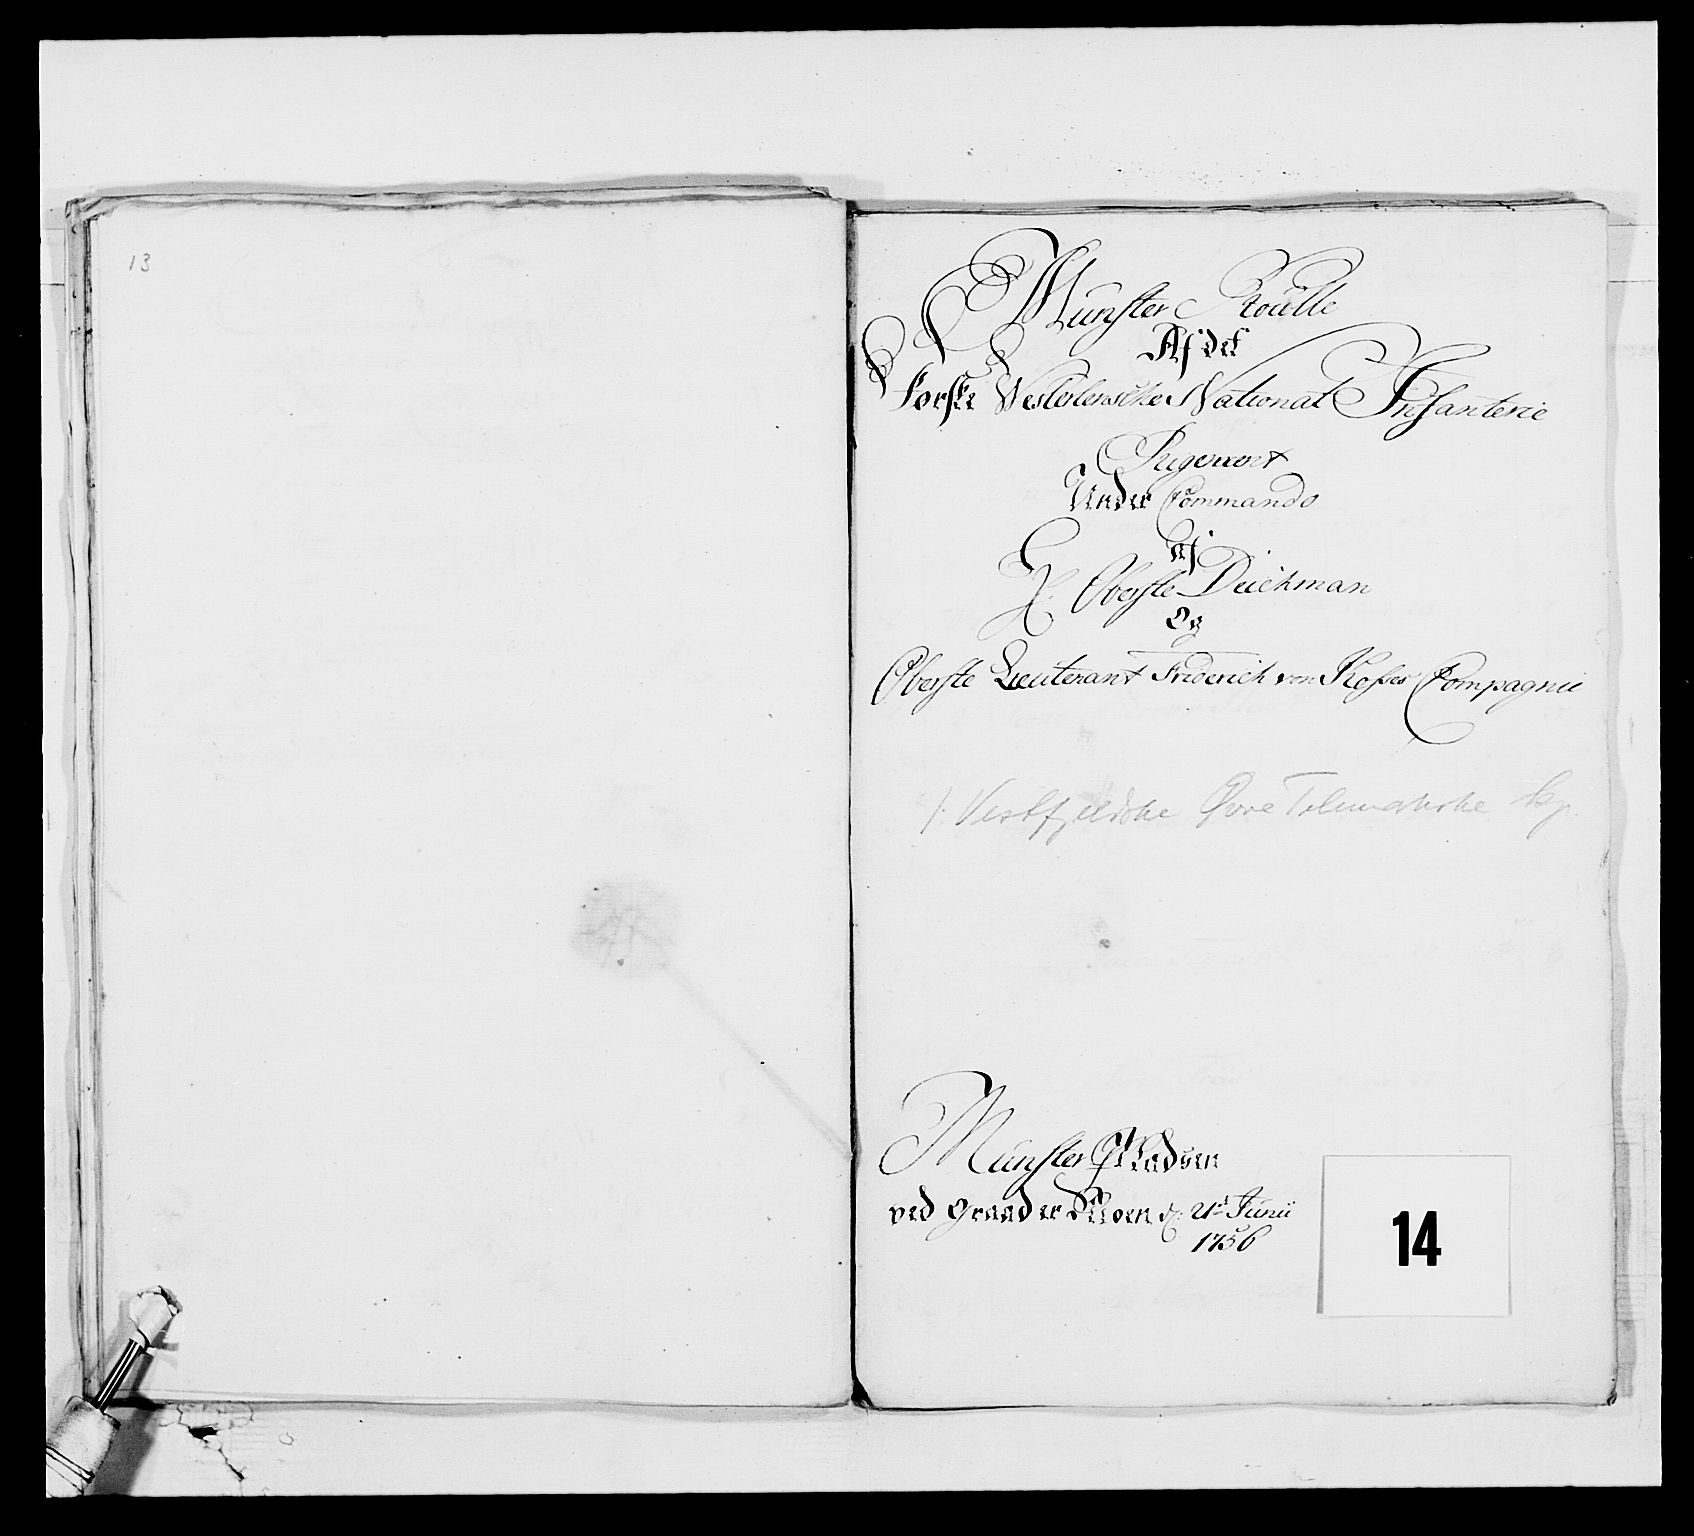 13
Munster Roulle
Af det
første Vesterlensche National Infanterie
Regement
Under Commando
af
H: Oberste Deichman
Og
Oberste Lieutenant Friderich von Koſses Compagnie
1. Vestfjeldske Øvre Telemarkske
Munster Pladsen
ved Graader Moen d: 21d Junii
1756
14